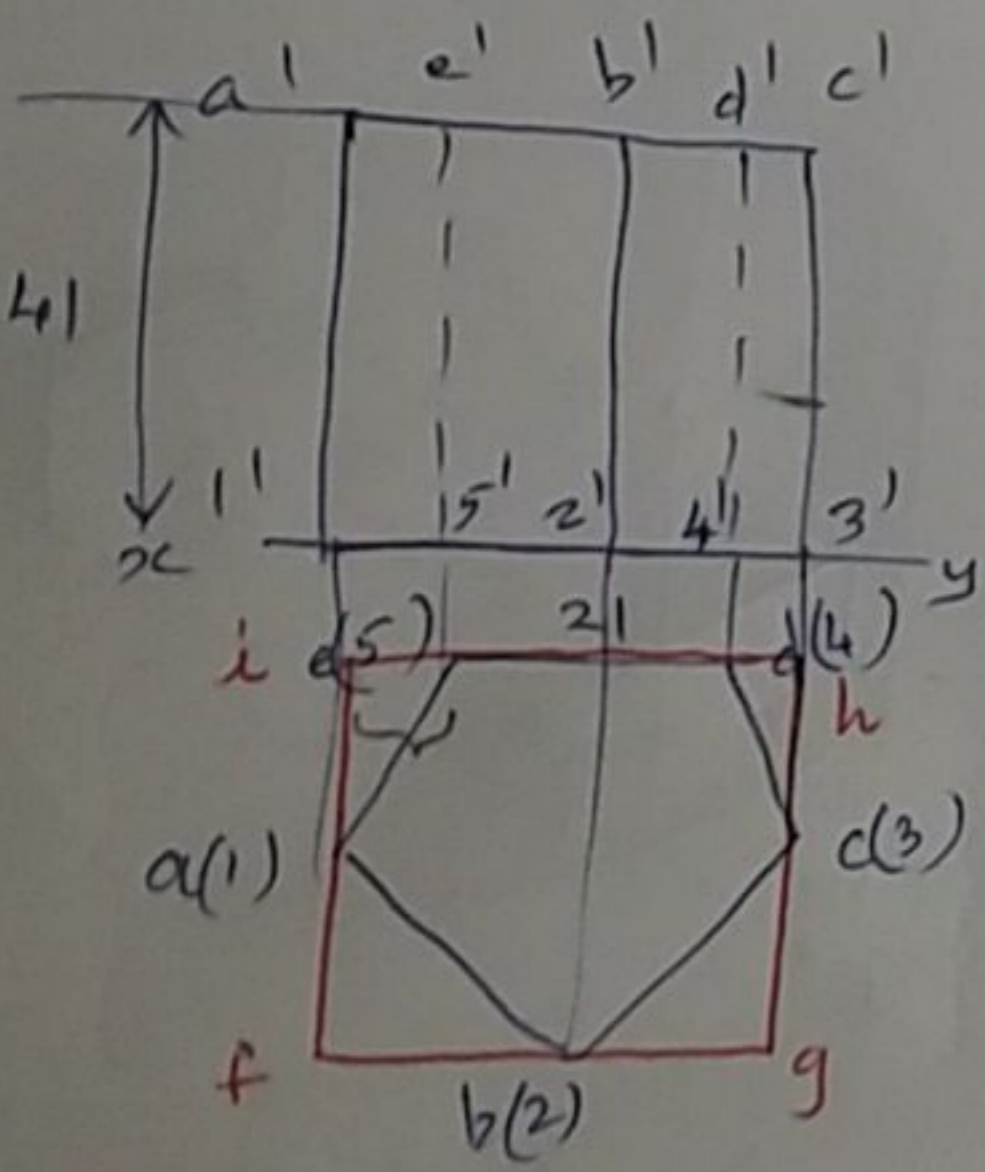 a' e' b' d' c'
41
1' 5' 2' 4' 3'
x y
i e(5) 21 d(4)
h
a(1) c(3)
f g
b(2)